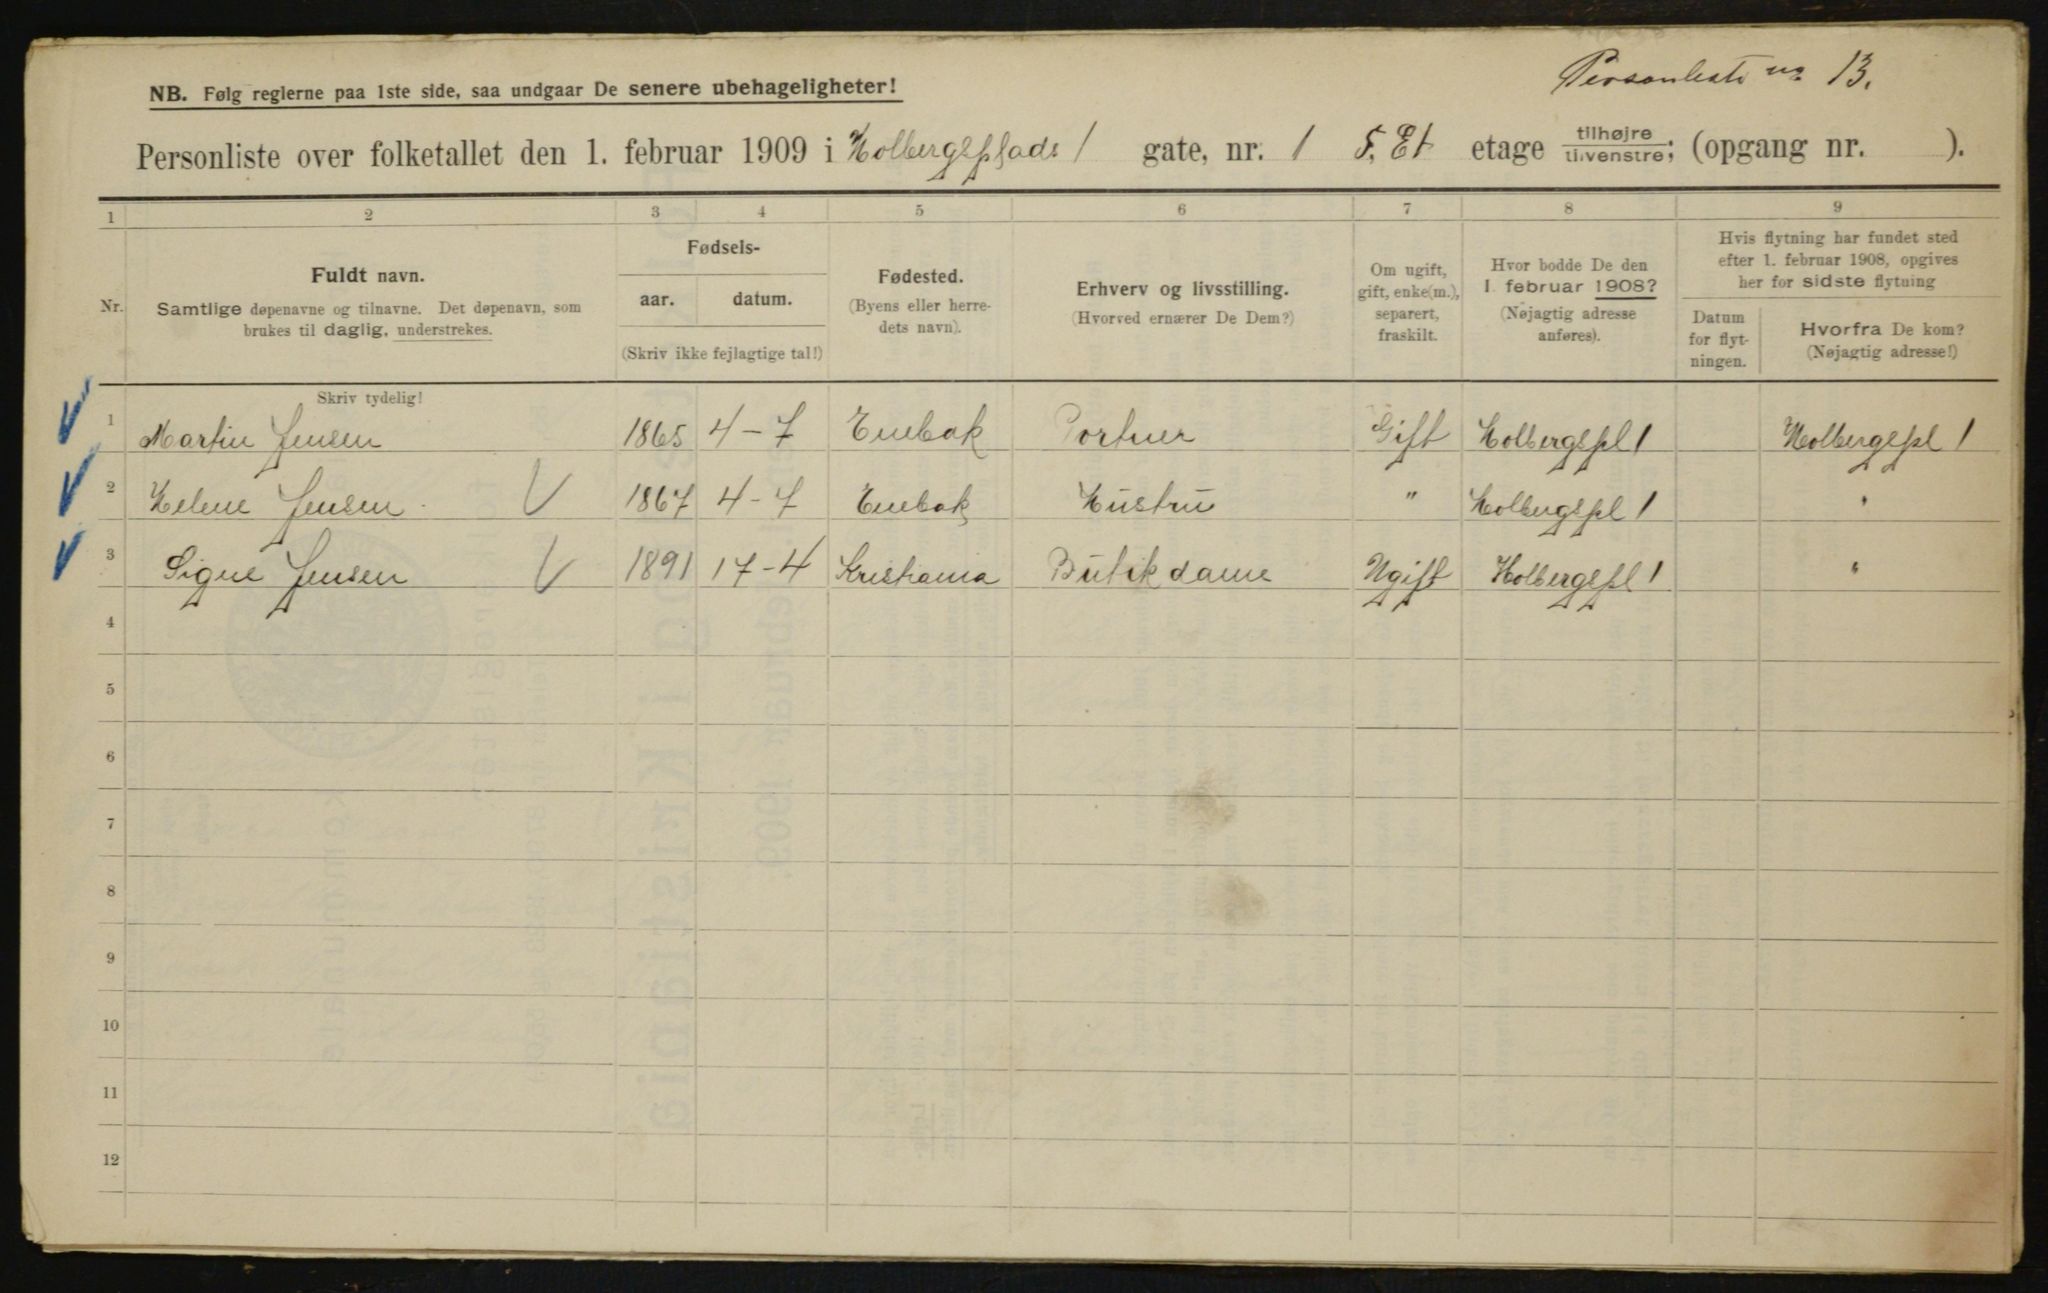 Personliste no 13.
NB. Følg reglerne paa 1ste side, saa undgaar De senere ubehageligheter!
Personliste over folketallet den 1. februar 1909 i Holbergsplads 1 gate, nr. 1 5. Et etage tilhøjre / tilvenstre; (opgang nr. ).
1 2 3 4 5 6 7 8 9
Nr.
Fuldt navn.
Samtlige døpenavne og tilnavne. Det døpenavn, som
brukes til daglig, understrekes.
Fødsels-
aar. datum.
(Skriv ikke fejlagtige tal!)
Fødested.
(Byens eller herre-
dets navn).
Erhverv og livsstilling.
(Hvorved ernærer De Dem?)
Om ugift,
gift, enke(m.),
separert,
fraskilt.
Hvor bodde De den
1. februar 1908?
(Nøjagtig adresse
anføres).
Hvis flytning har fundet sted
efter 1. februar 1908, opgives
her for sidste flytning
Datum
for flyt-
ningen.
Hvorfra De kom?
(Nøjagtig adresse!)
Skriv tydelig!
1 Martin Jensen 1865 4-7 Enebak Portner Gift Holbergspl 1 Holbergspl 1
2 Helene Jensen 1867 4-7 Enebak Hustru " Holbergspl 1 "
3 Signe Jensen 1891 17-4 Kristiania Butikdame Ugift Holbergspl 1 "
4
5
6
7
8
9
10
11
12